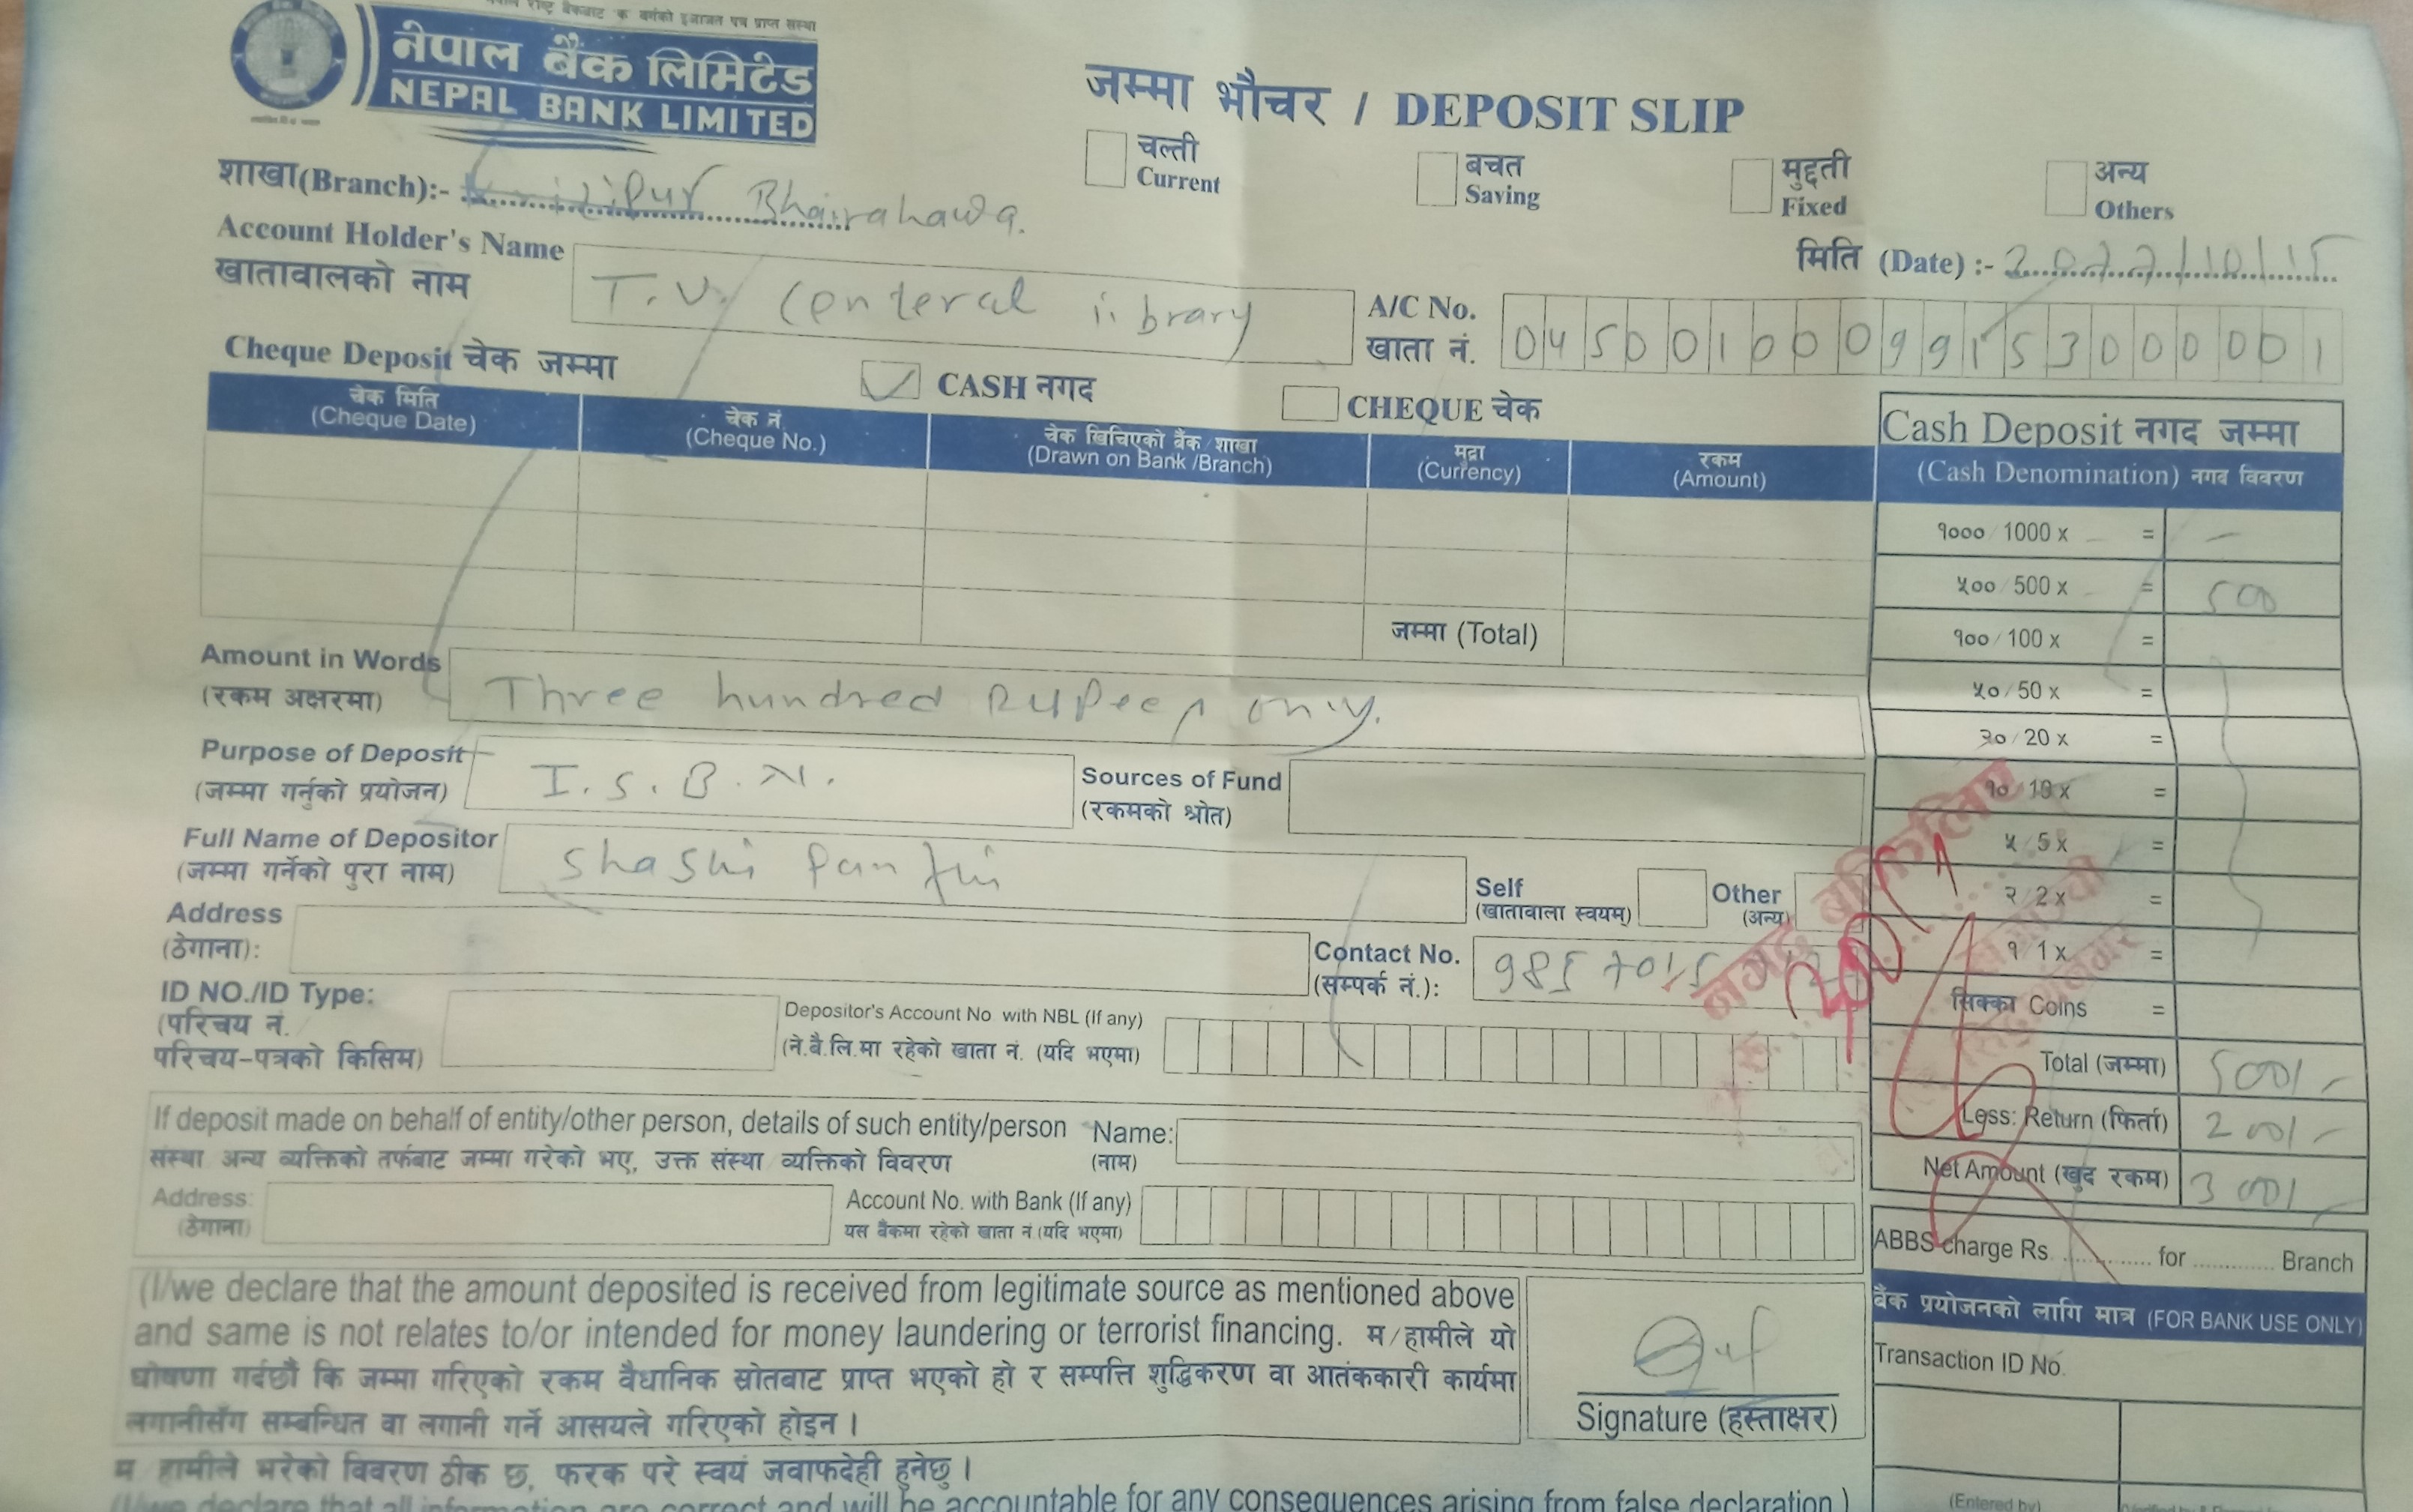 नेपाल राष्ट्र बैंकबाट 'क' वर्गको इजाजत पत्र प्राप्त संस्था
नेपाल बैंक लिमिटेड
NEPAL BANK LIMITED
जम्मा भौचर / DEPOSIT SLIP
चल्ती
Current
बचत
Saving
मुद्दती
Fixed
अन्य
Others
शाखा(Branch):- Bhairahawa.
मिति (Date) :- 2077/10/15
Account Holder's Name
खातावालको नाम
T.U. Centeral library
A/C No.
खाता नं.
04500100099153000001
Cheque Deposit चेक जम्मा
CASH नगद
CHEQUE चेक
चेक मिति
(Cheque Date)
चेक नं
(Cheque No.)
चेक खिचिएको बैंक/शाखा
(Drawn on Bank /Branch)
मुद्रा
(Currency)
रकम
(Amount)
जम्मा (Total)
Cash Deposit नगद जम्मा
(Cash Denomination) नगद विवरण
१०००/1000 x = –
५००/500 x = 500
१००/100 x =
५०/50 x =
२०/20 x =
१०/10 x =
५/5 x =
२/2 x =
१/1 x =
सिक्का Coins =
Total (जम्मा) 500/-
Less: Return (फिर्ता) 200/-
Net Amount (खुद रकम) 300/-
Amount in Words
(रकम अक्षरमा)
Three hundred Rupees only.
Purpose of Deposit
(जम्मा गर्नुको प्रयोजन)
I.S.B.N.
Sources of Fund
(रकमको श्रोत)
Full Name of Depositor
(जम्मा गर्नेको पुरा नाम)
Shashi Panthi
Self
(खातावाला स्वयम्)
Other
(अन्य)
Address
(ठेगाना):
Contact No.
(सम्पर्क नं.):
ID NO./ID Type:
(परिचय नं.
परिचय-पत्रको किसिम)
Depositor's Account No with NBL (If any)
(ने.बै.लि.मा रहेको खाता नं. (यदि भएमा)
If deposit made on behalf of entity/other person, details of such entity/person
संस्था अन्य व्यक्तिको तर्फबाट जम्मा गरेको भए, उक्त संस्था व्यक्तिको विवरण
Name:
(नाम)
Address:
(ठेगाना)
Account No. with Bank (If any)
यस बैंकमा रहेको खाता नं (यदि भएमा)
ABBS charge Rs. .............. for ............. Branch
बैंक प्रयोजनको लागि मात्र (FOR BANK USE ONLY)
Transaction ID No.
(I/we declare that the amount deposited is received from legitimate source as mentioned above
and same is not relates to/or intended for money laundering or terrorist financing. म/हामीले यो
घोषणा गर्दछौं कि जम्मा गरिएको रकम वैधानिक स्रोतबाट प्राप्त भएको हो र सम्पत्ति शुद्धिकरण वा आतंककारी कार्यमा
लगानीसँग सम्बन्धित वा लगानी गर्ने आसयले गरिएको होइन।
Signature (हस्ताक्षर)
म हामीले भरेको विवरण ठीक छ, फरक परे स्वयं जवाफदेही हुनेछु।
(I/we declare that all information are correct and will be accountable for any consequences arising from false declaration.)
(Entered by)